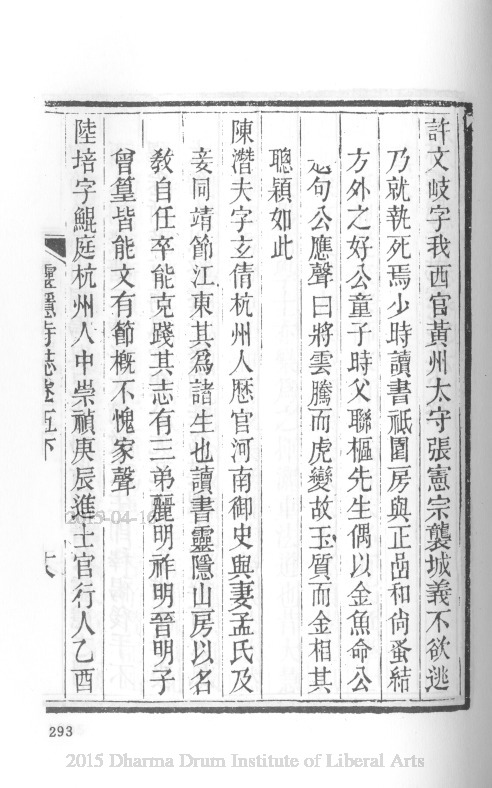 許文岐字我西官黃州太守張憲宗襲城義不欲逃
乃就執死焉少時讀書祇園房與正嵒和尚蚤結
方外之好公童子時父聯樞先生偶以金魚命公
句公應聲曰將雲騰而虎變故玉質而金相其
聰穎如此
陳潛夫字玄倩杭州人歷官河南御史與妻孟氏及
妾同靖節江東其爲諸生也讀書靈隱山房以名
敎自任卒能克踐其志有三弟麗明祚明晉明子
曾篁皆能文有節槪不愧家聲
陸培字鯤庭杭州人中崇禎庚辰進士官行人乙酉
靈隱寺志卷五下
293
2015-04-16
2015 Dharma Drum Institute of Liberal Arts